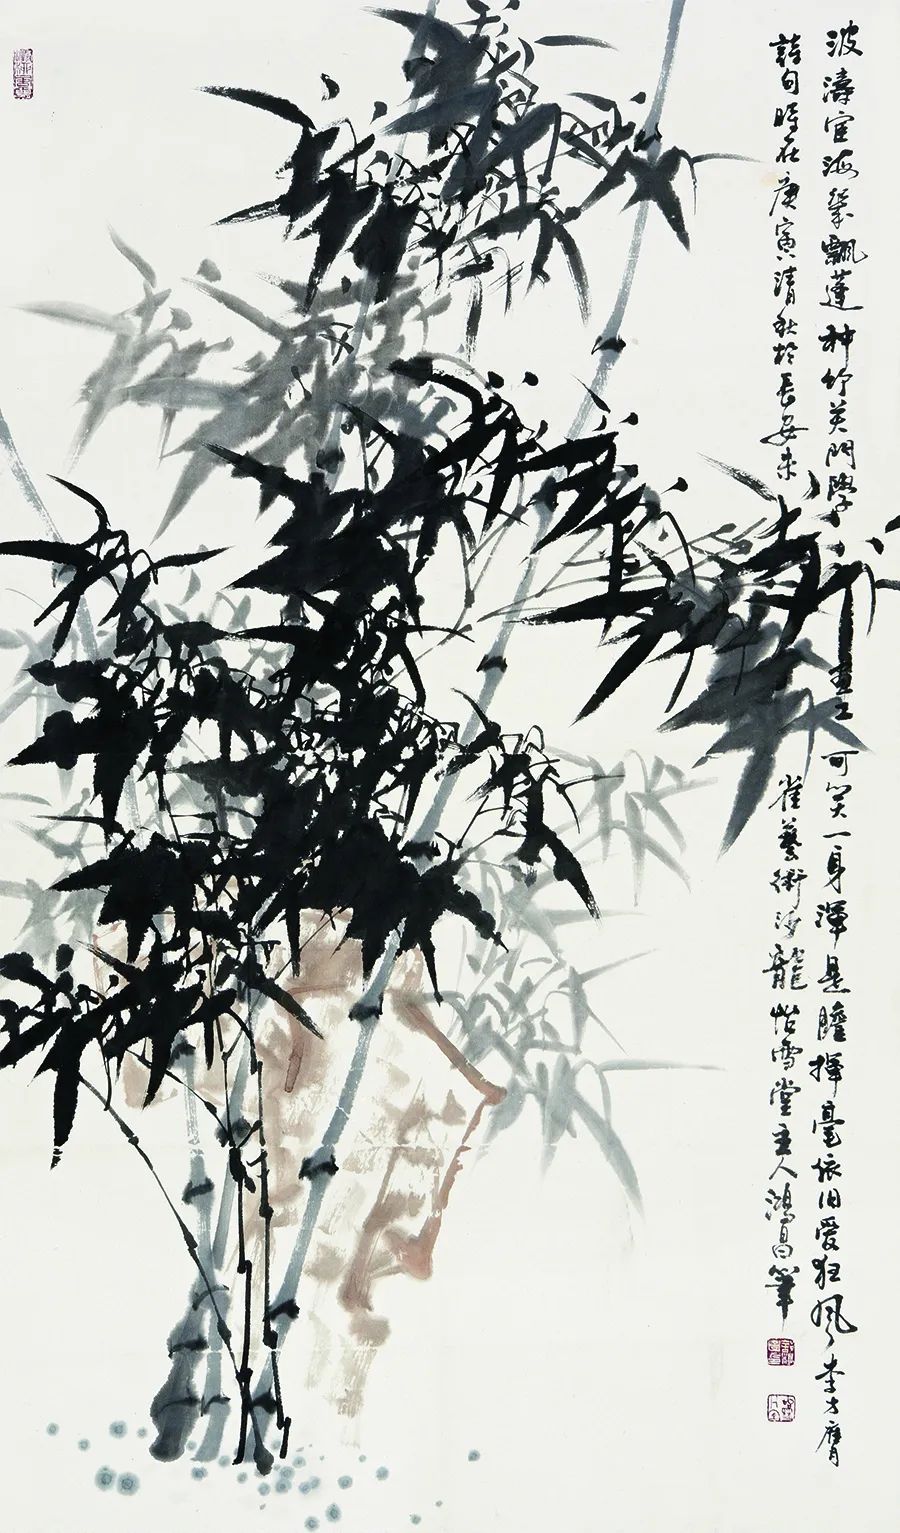 波濤宦海幾飄蓬种竹关門學畫工可笑一身渾是膽揮毫依旧愛狂风李方膺
詩句時在庚寅清秋於長安朱雀藝術沙龍雪堂主人鴻昌筆